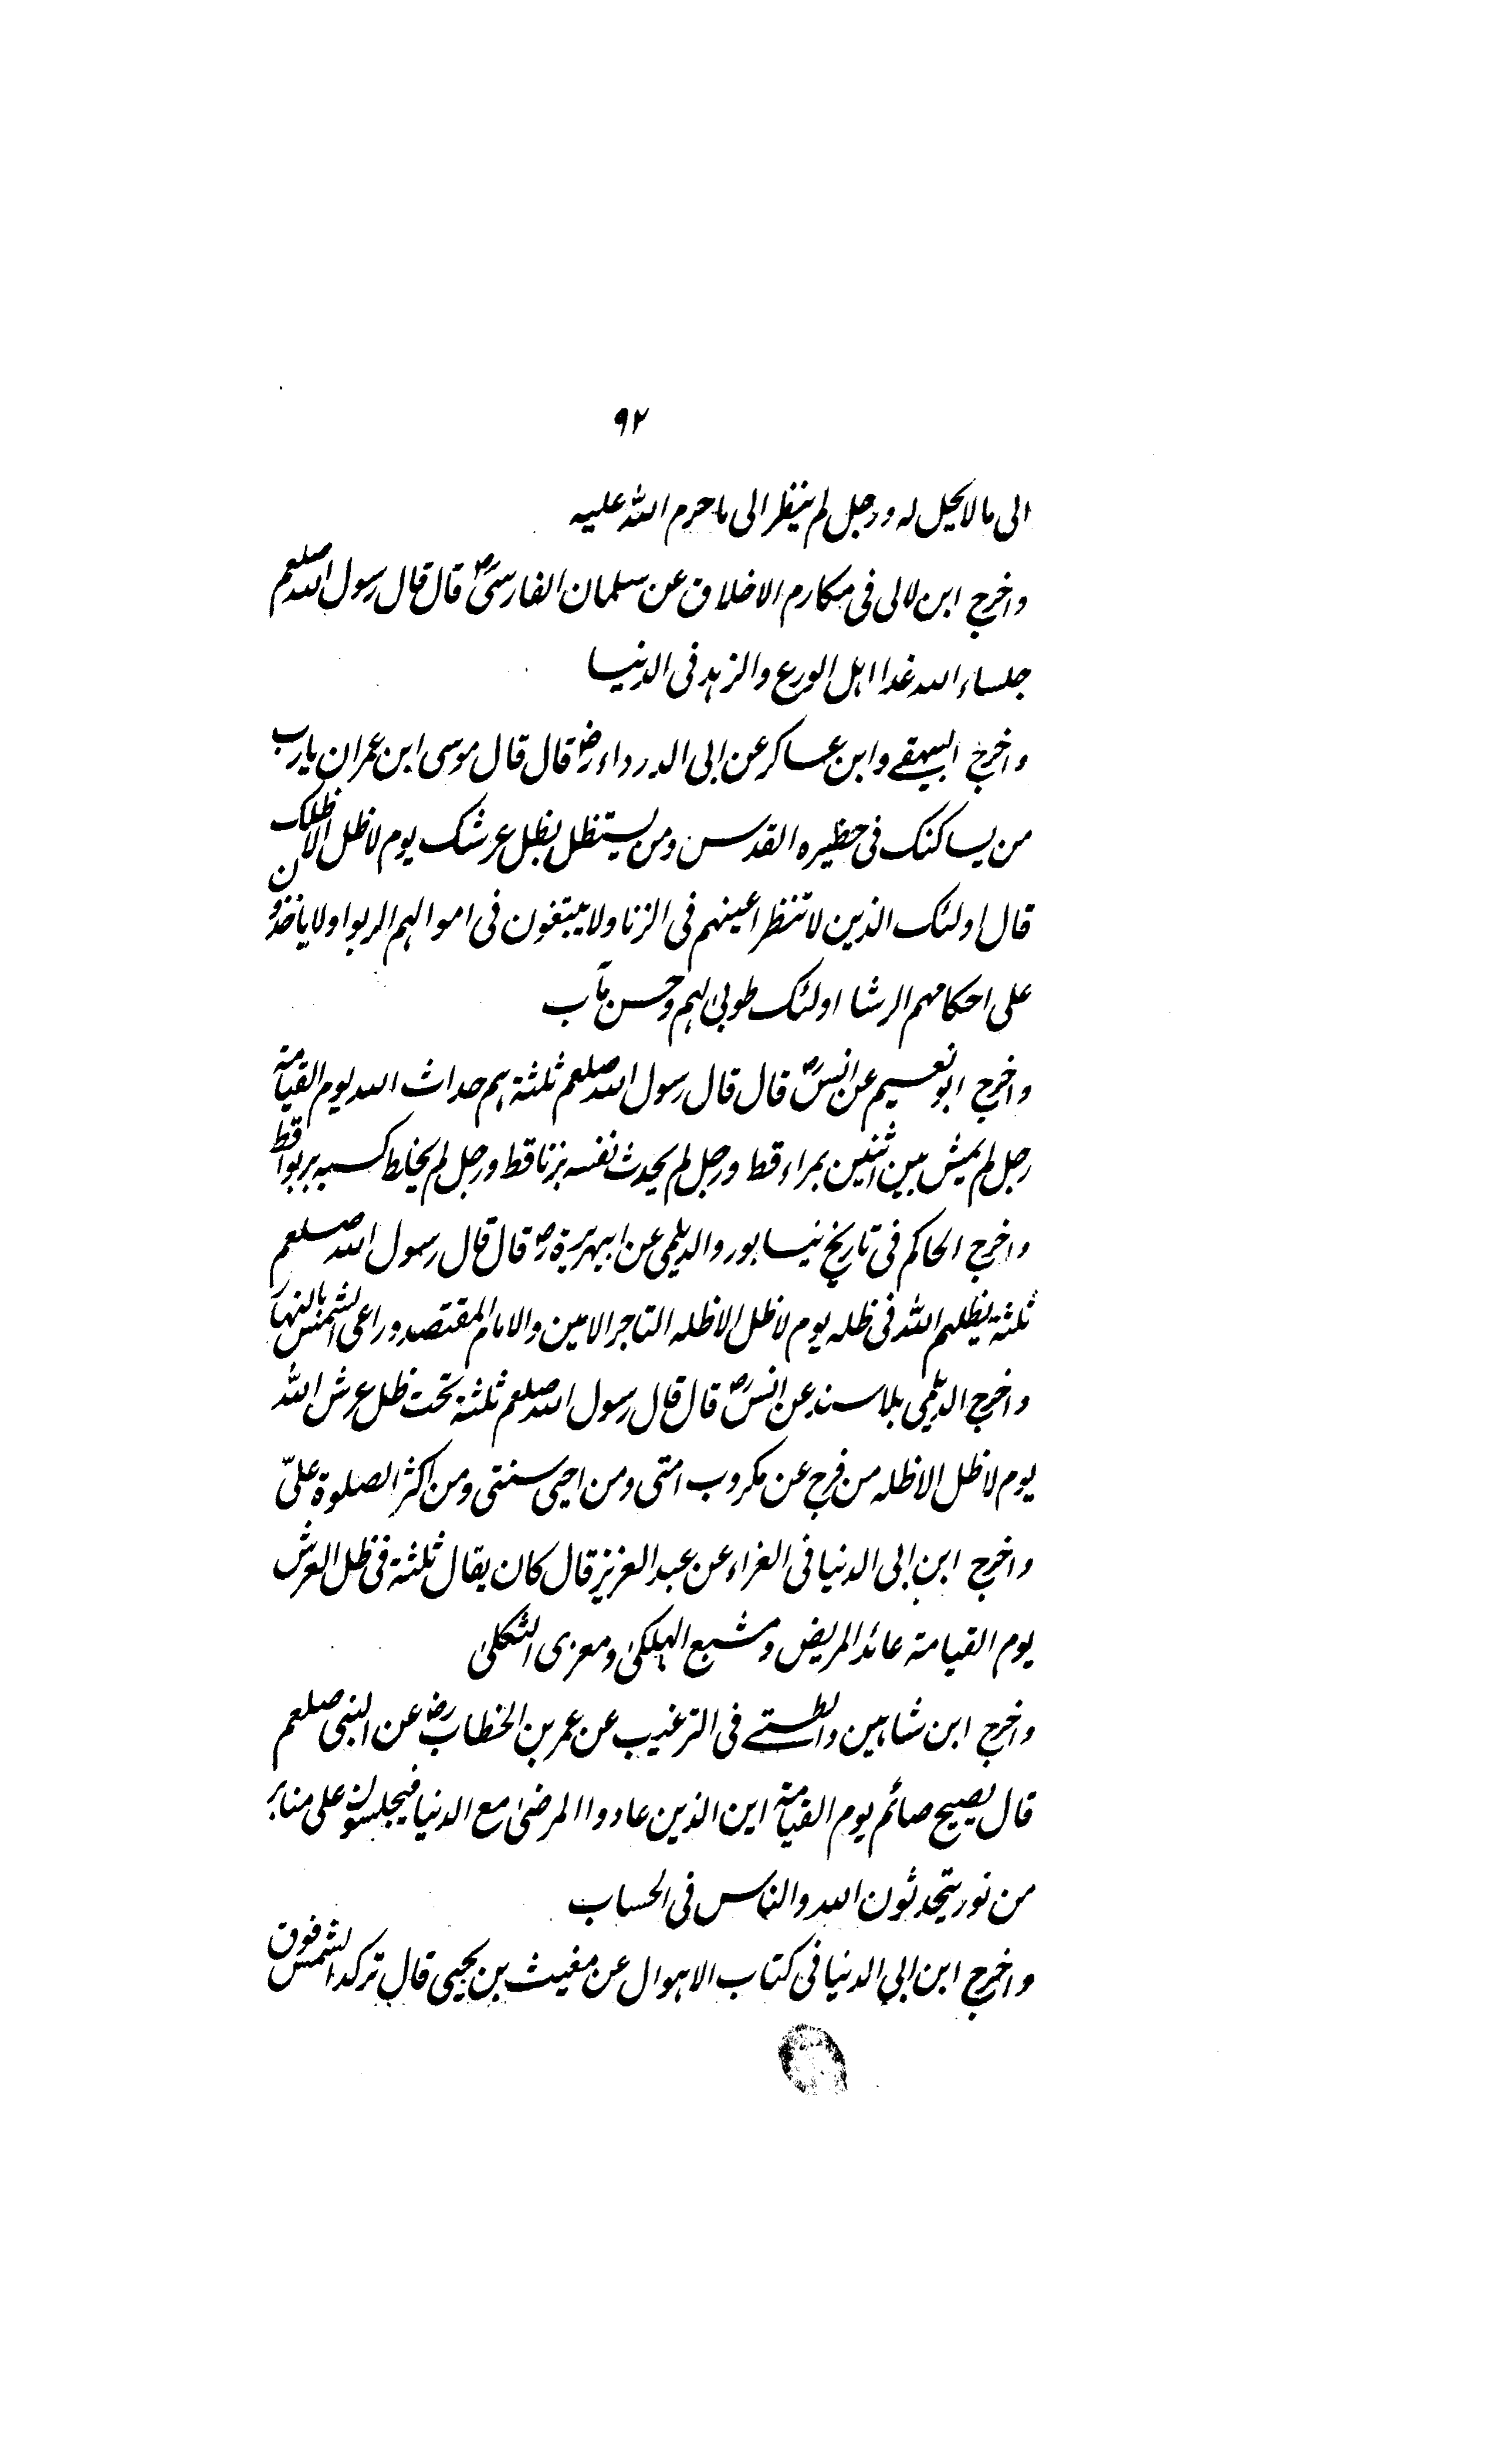 ٩٢
الى ما لا يحل له ورجل لم ينظر الى ما حرم الله عليه
واخرج ابن لالى فى مكارم الاخلاق عن سلمان الفارسىؓ قال قال رسول الله صلعم
جلساء الله غدا اہل الورع والزہد فى الدنيا
واخرج البيہقے وابن عساكر عن ابى الدرداء رض قال قال موسى ابن عمران يا رب
من يساكنک فى حظيرہ القدس ومن يستظل بظل عرشک يوم لا ظل الا ظلک
قال اولئک الذين لا تنظر اعينہم فى الزنا ولا يبتغون فى اموالہم الربوا ولا ياخذون
على احكامہم الرشا اولئک طوبىٰ لہم وحسن مآب
واخرج ابو نعيم عن انسؓ قال قال رسول الله صلعم ثلثة ہم حداث الله يوم القيامة
رجل لم يمش بين اثنين بمراء قط ورجل لم يحدث نفسه بزنا قط ورجل لم يخلط كسبه بربوا قط
واخرج الحاكم فى تاريخ نيسابور والديلمى عن ابيہريرةؓ قال قال رسول الله صلعم
ثلثة يظلہم الله فى ظله يوم لا ظل الا ظله التاجر الامين والامام المقتصد وراعى الشمس بالنہار
واخرج الديلمى بلا سند عن انسؓ قال قال رسول الله صلعم ثلثة تحت ظل عرش الله
يوم لا ظل الا ظله من فرج عن مكروب امتى ومن احيى سنتى ومن اكثر الصلوة علىّ
واخرج ابن ابى الدنيا فى العزاء عن عبد العزيز قال كان يقال ثلثة فى ظل العرش
يوم القيامة عائد المريض ومشيع الہلكىٰ ومعزى الثكلىٰ
واخرج ابن شاہين والطستے فى الترغيب عن عمر بن الخطاب رض عن النبى صلعم
قال يصيح صائم يوم القيامة اين الذين عادوا المرضىٰ مع الدنيا فيجلسون على منابر
من نور يتحدثون الله والناس فى الحساب
واخرج ابن ابى الدنيا فى كتاب الاہوال عن مغيث بن يحيى قال تركد الشمس فوق